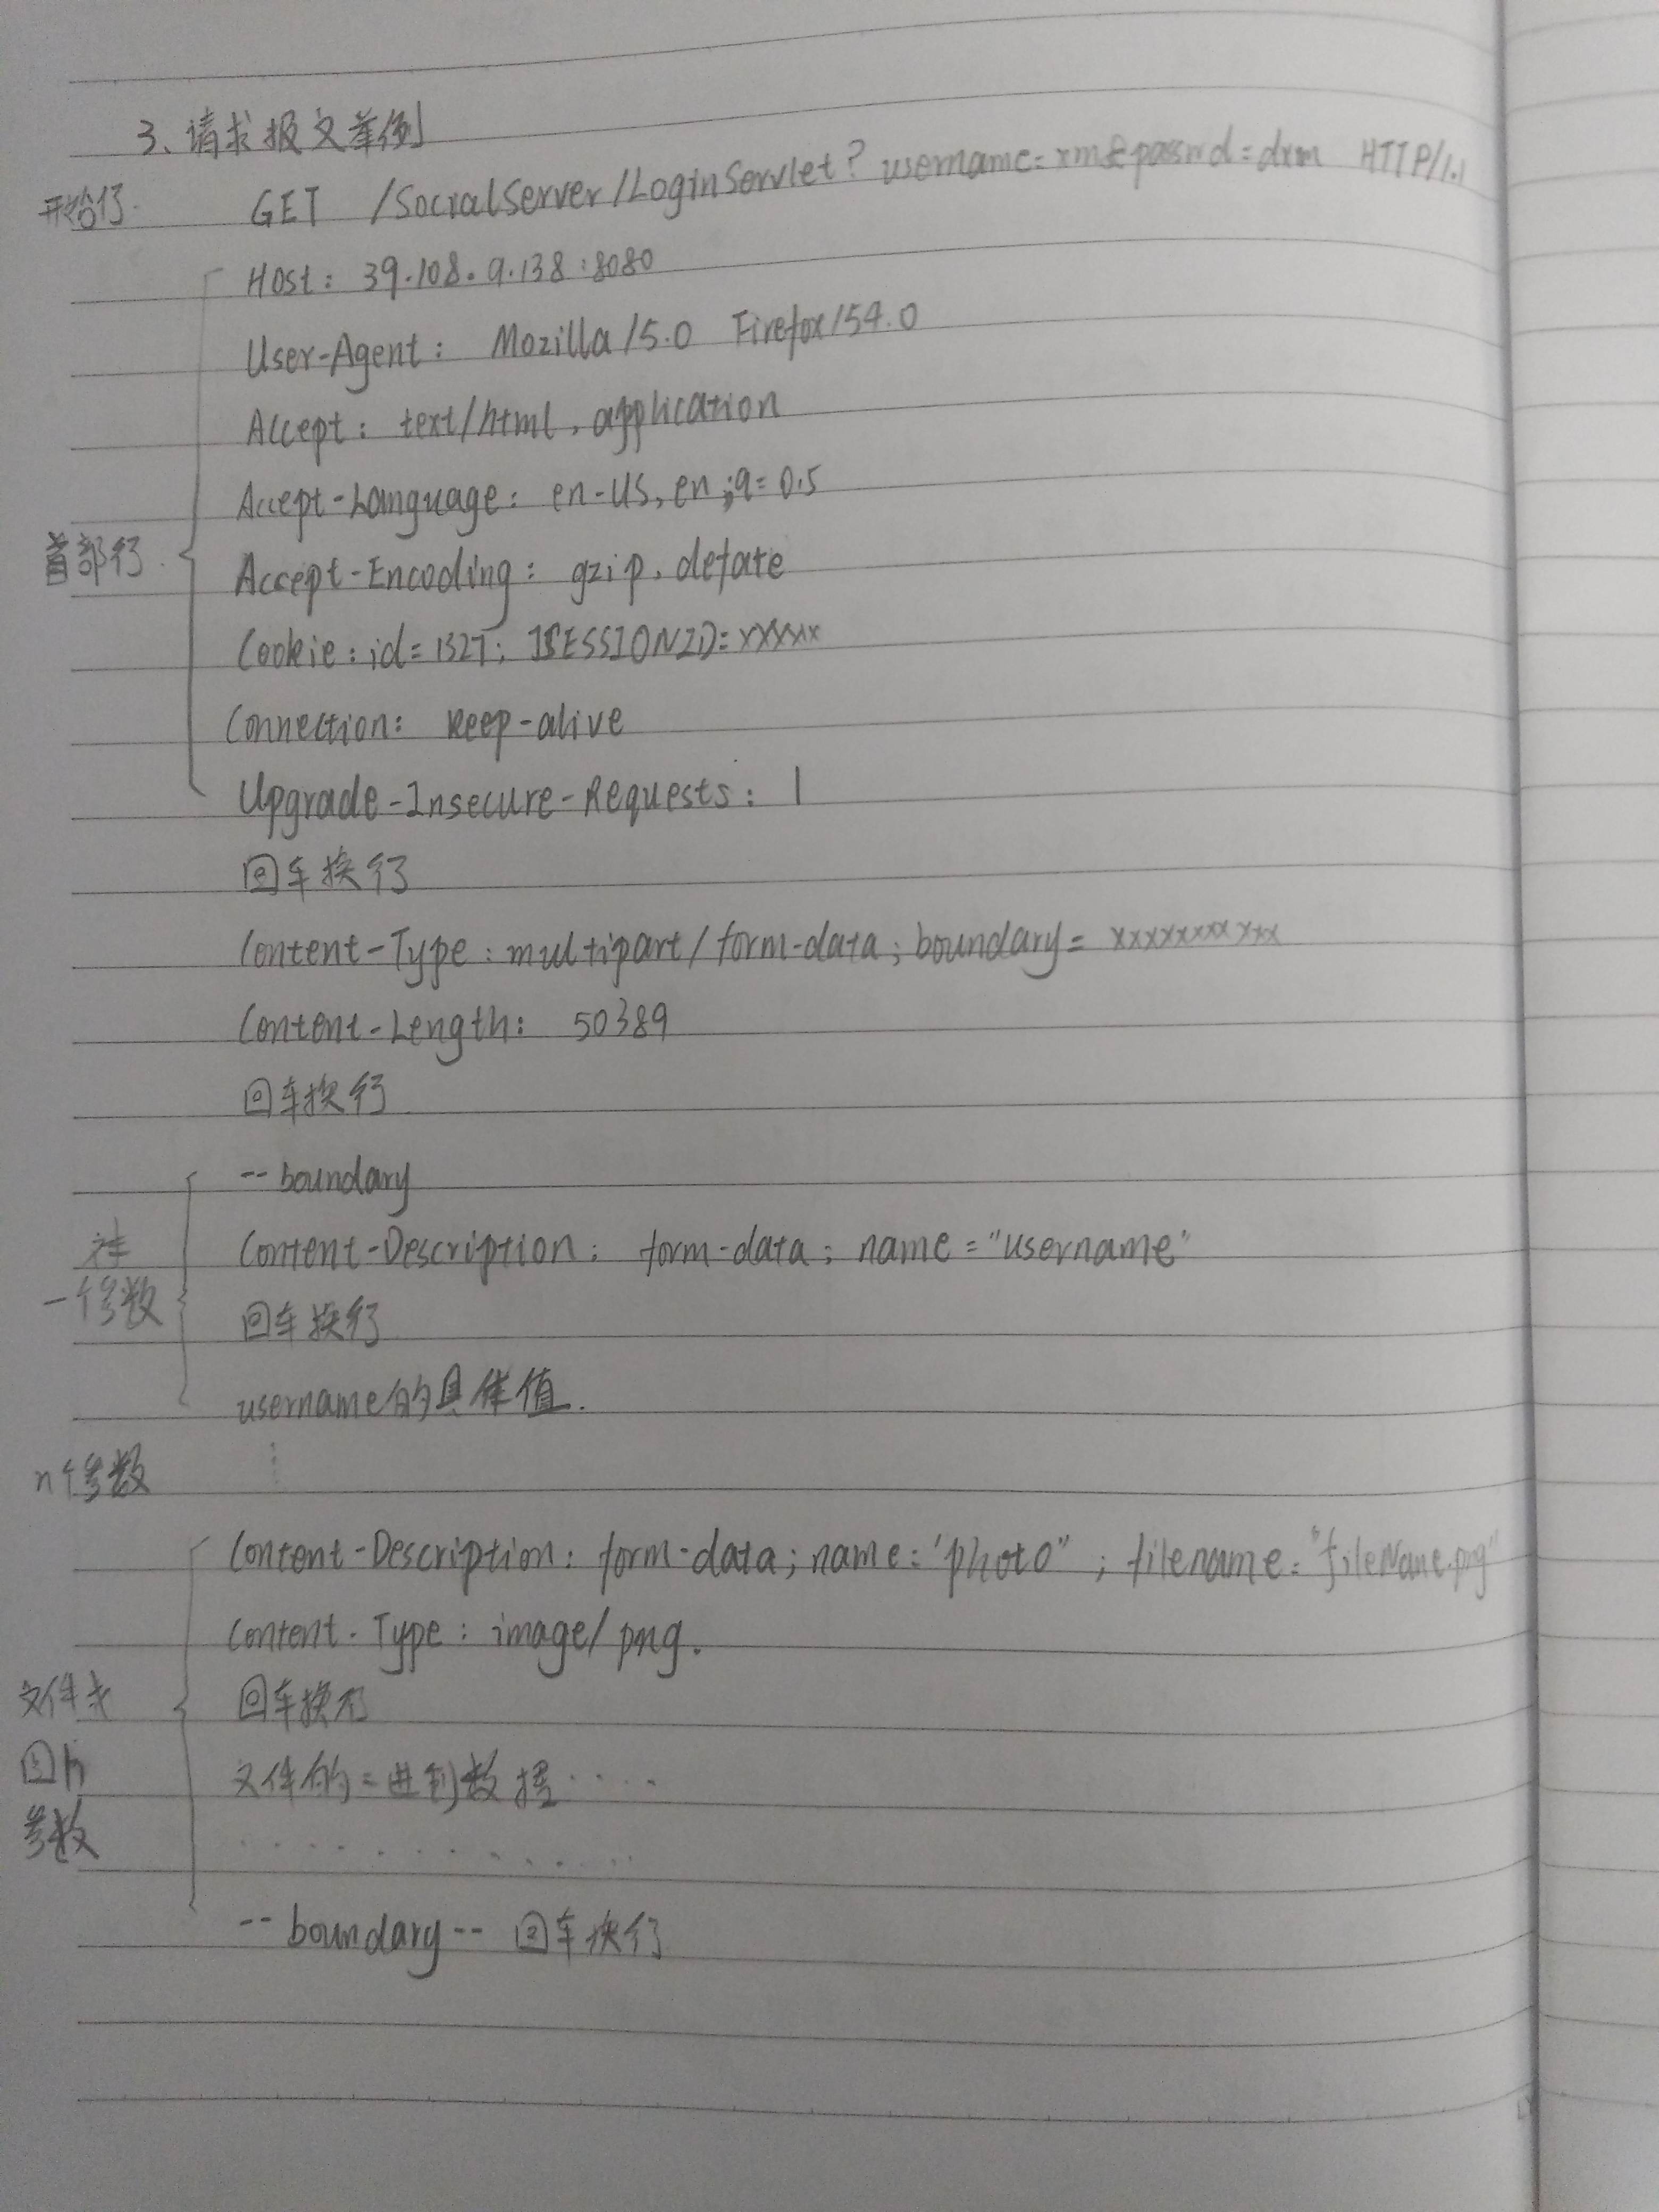 3、请求报文举例
开始行 GET /SocialServer/LoginServlet? username=xm&passwd=dxm HTTP/1.1
Host: 39.108.9.138:8080
User-Agent: Mozilla/5.0 Firefox/54.0
Accept: text/html, application
Accept-Language: en-US, en;q=0.5
首部行 Accept-Encoding: gzip, defate
Cookie: id=1327; JSESSIONID=xxxxx
Connection: keep-alive
Upgrade-Insecure-Requests: 1
回车换行
Content-Type: multipart/form-data; boundary= xxxxxxxxxxx
Content-Length: 50389
回车换行
--boundary
Content-Description: form-data; name="username"
一个参数 回车换行
username的具体值.
n个参数 ⋮
Content-Description: form-data; name='photo"; filename="fileName.png"
Content-Type: image/png.
文件或 回车换行
图片 文件的二进制数据·····
参数 ··············
--boundary-- 回车换行